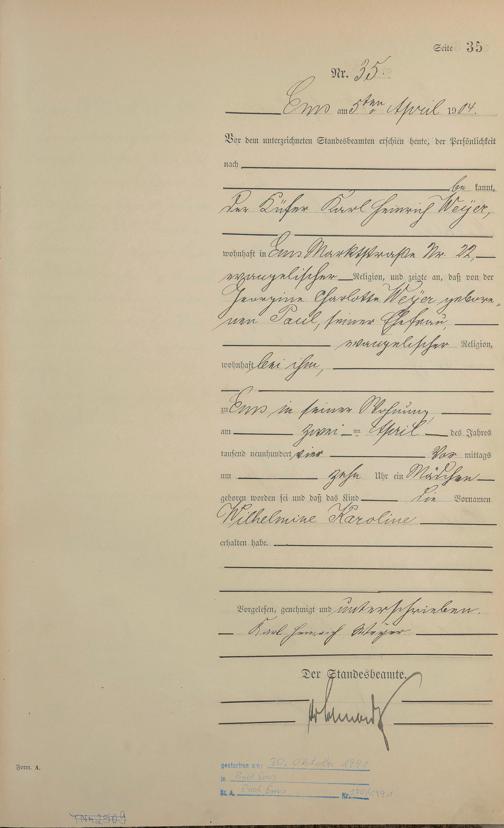 Seite 35
Nr. 35.
Ems am 5ten April 1904.
Vor dem unterzeichneten Standesbeamten erschien heute, der Persönlichkeit
nach
be kannt,
der Küfer Karl Heinrich Weyer,
wohnhaft in Ems Marktstraße Nr. 22,
evangelischer Religion, und zeigte an, daß von der
Georgine Charlotte Weyer gebore-
nen Paul, seiner Ehefrau,
evangelischer Religion,
wohnhaft bei ihm,
zu Ems in seiner Wohnung,
am zwei = April des Jahres
tausend neunhundert vier Vor mittags
um zehn Uhr ein Mädchen
geboren worden sei und daß das Kind die Vornamen
Wilhelmine Karoline
erhalten habe.
Vorgelesen, genehmigt und unterschrieben.
Karl Heinrich Weyer
Der Standesbeamte.
Form. A.
gestorben am: 30. Oktober
in Bad Ems
St. A. Bad Ems Nr.